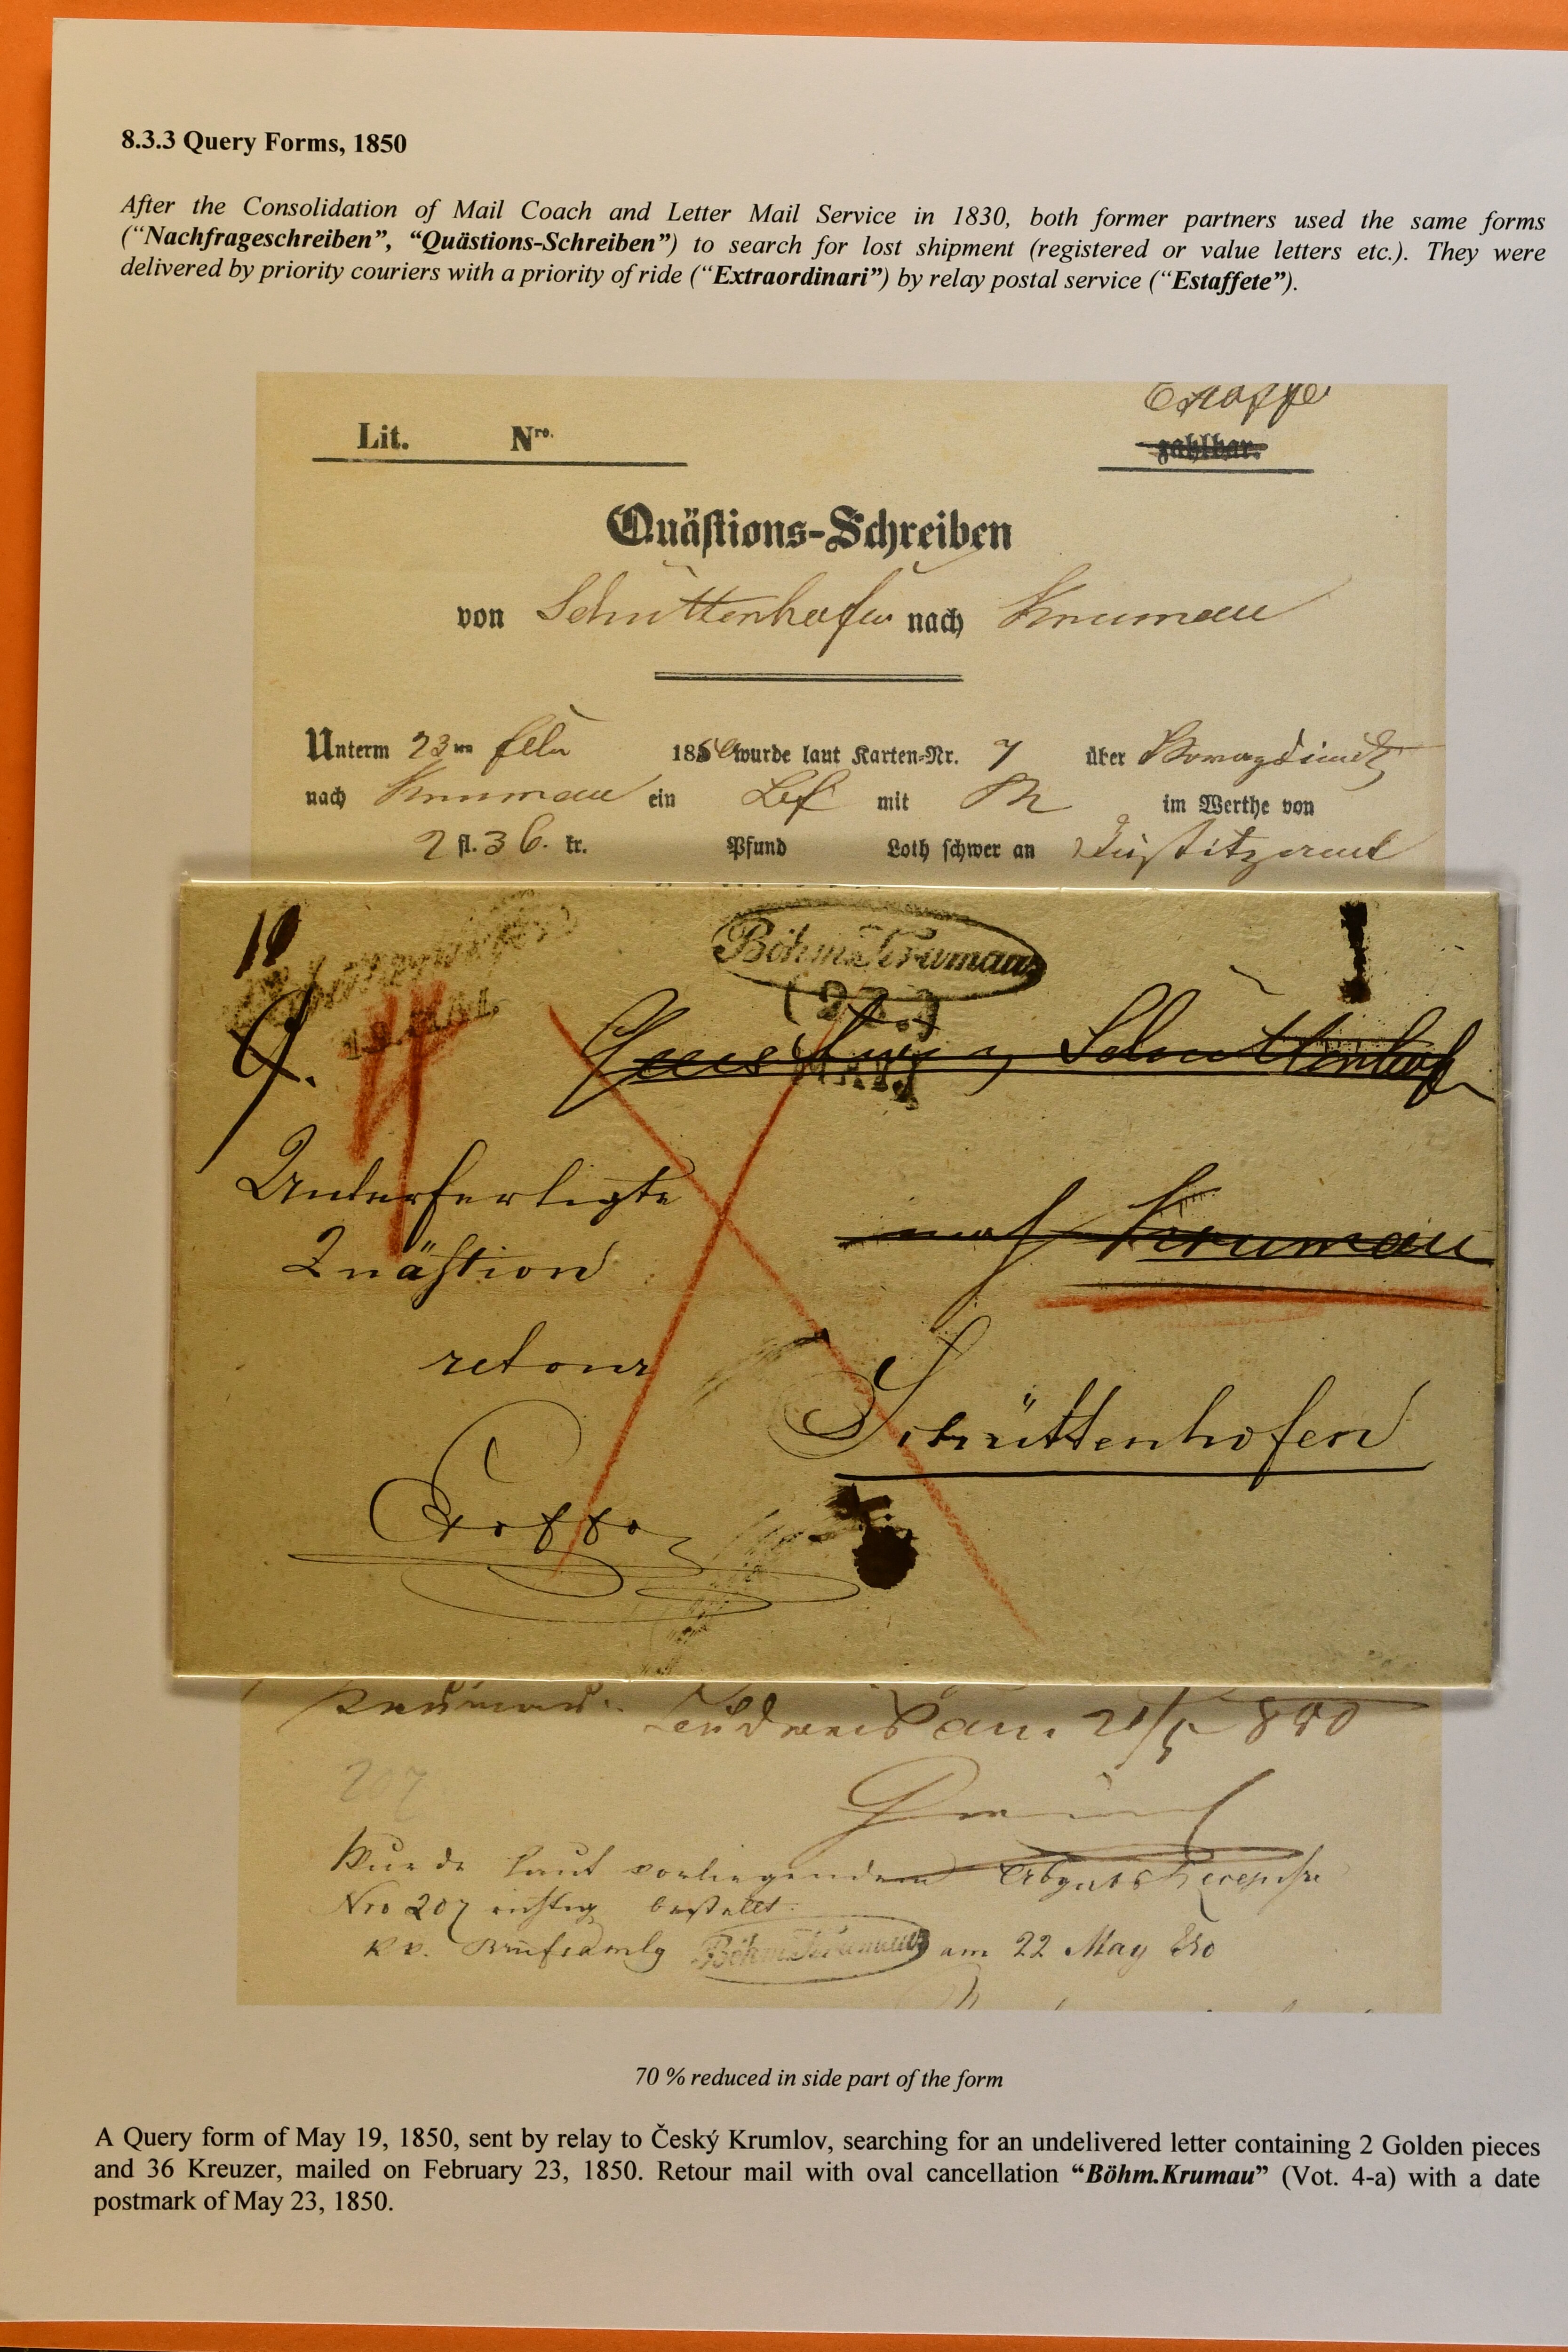 8.3.3 Query Forms, 1850
After the Consolidation of Mail Coach and Letter Mail Service in 1830, both former partners used the same forms
(“Nachfrageschreiben”, “Quästions-Schreiben”) to search for lost shipment (registered or value letters etc.). They were
delivered by priority couriers with a priority of ride (“Extraordinari”) by relay postal service (“Estaffete”).
Lit. Nro.
zahlbar.
Quästions-Schreiben
von Schüttenhofen nach Krumau
Unterm 23ten feber 1850 wurde laut Karten-Nr. 7 über
nach Krumau ein mit im Werthe von
2 fl. 36. kr. Pfund Loth schwer an Justitzamt
Böhm.Krumau
19. MAI.
(23.)
MAI
Schüttenhof
nach Krumau
Unterfertigte
Quästion
retour
Schüttenhofen
Exoffo
Krumau. am 21/5 850
207
Wurde laut vorliegendem Abgabs Recepisse
Nro 207 richtig bestellt.
Böhm.Krumau am 22 May 850
70 % reduced in side part of the form
A Query form of May 19, 1850, sent by relay to Český Krumlov, searching for an undelivered letter containing 2 Golden pieces
and 36 Kreuzer, mailed on February 23, 1850. Retour mail with oval cancellation “Böhm.Krumau” (Vot. 4-a) with a date
postmark of May 23, 1850.